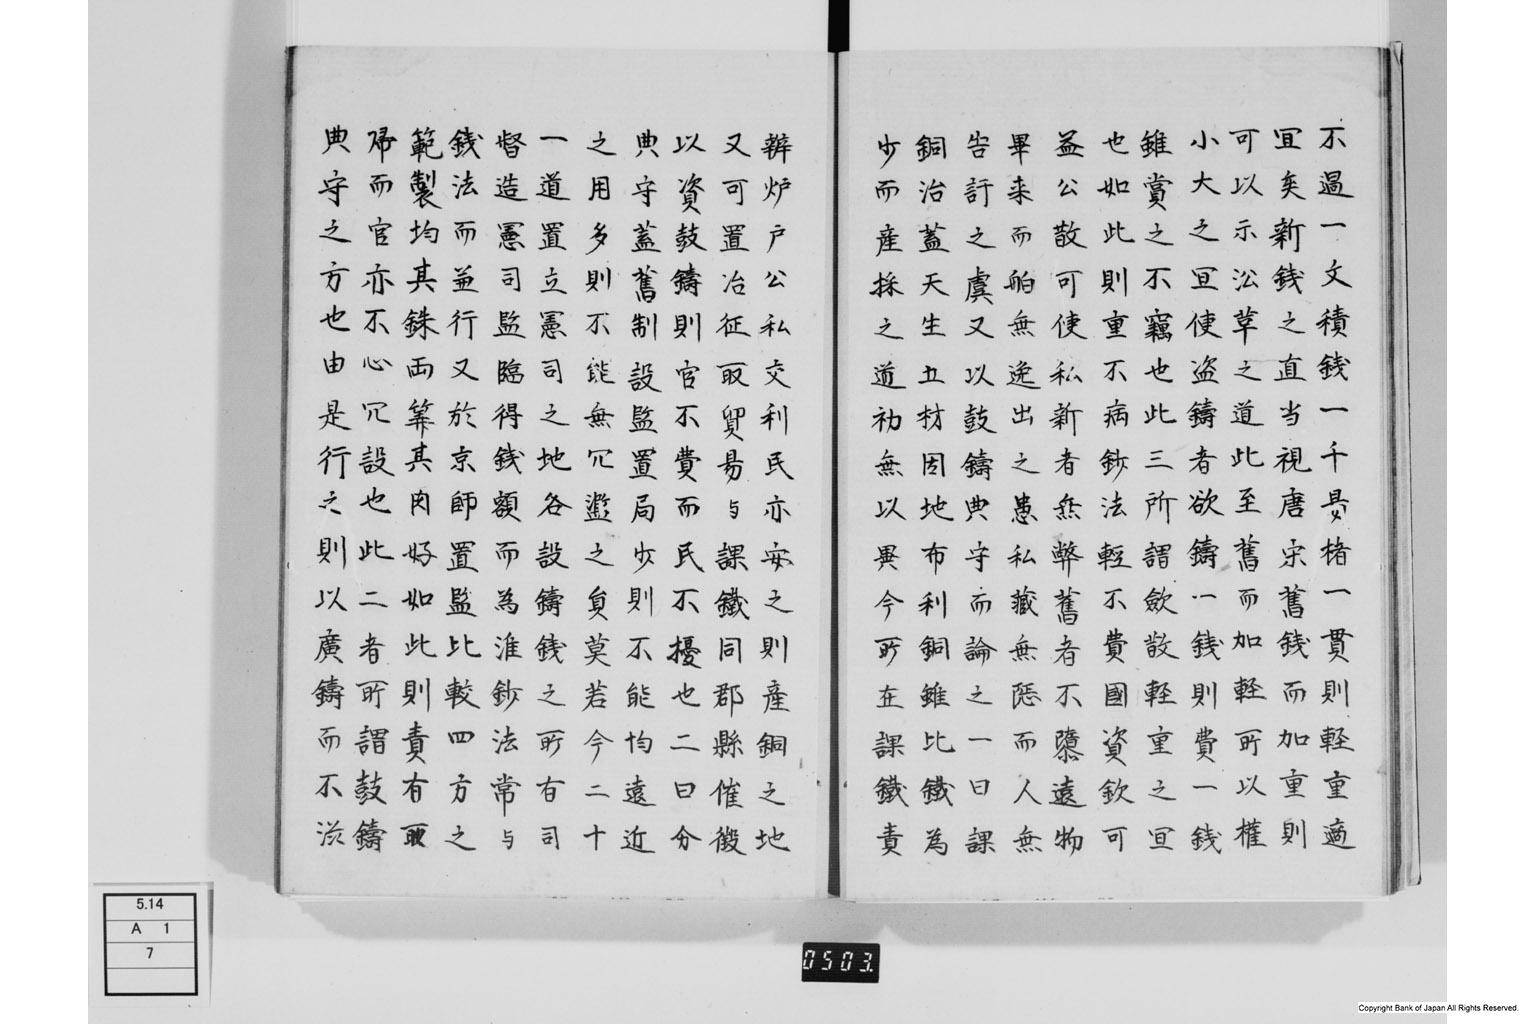 不過一文積錢一千是楮一貫則輕重適
冝矣新錢之直当視唐宋舊錢而加重則
可以示㳂革之道此至舊而加軽所以權
小大之冝使盗鑄者欲鑄一錢則費一錢
雖賞之不竊也此三所謂歛散軽重之冝
也如此則重不病鈔法輊不費國資欽可
益公散可使私新者無弊舊者不隳遠物
畢来而舶無逸出之患私藏無隠而人無
告訐之虞又以鼓鑄典守而論之一曰課
銅冶蓋天生五材因地布利銅雖比鐵為
少而産採之道初無以異今所在課鐵責
辦炉戸公私交利民亦安之則産銅之地
又可置冶征取貿易与課鐵同郡縣催徴
以資鼓鑄則官不費而民不擾也二曰分
典守蓋舊制設監置局少則不能均遠近
之用多則不能無冗濫之負莫若今二十
一道置立憲司之地各設鑄錢之所有司
督造憲司監臨得錢額而為淮鈔法常与
錢法而並行又於京師置監比較四方之
範製均其銖両筭其肉好如此則責有取
帰而官亦不心冗設也此二者所謂鼓鑄
典守之方也由是行之則以廣鑄而不滋
5.14
A 1
7
0503.
Copyright Bank of Japan All Rights Reserved.